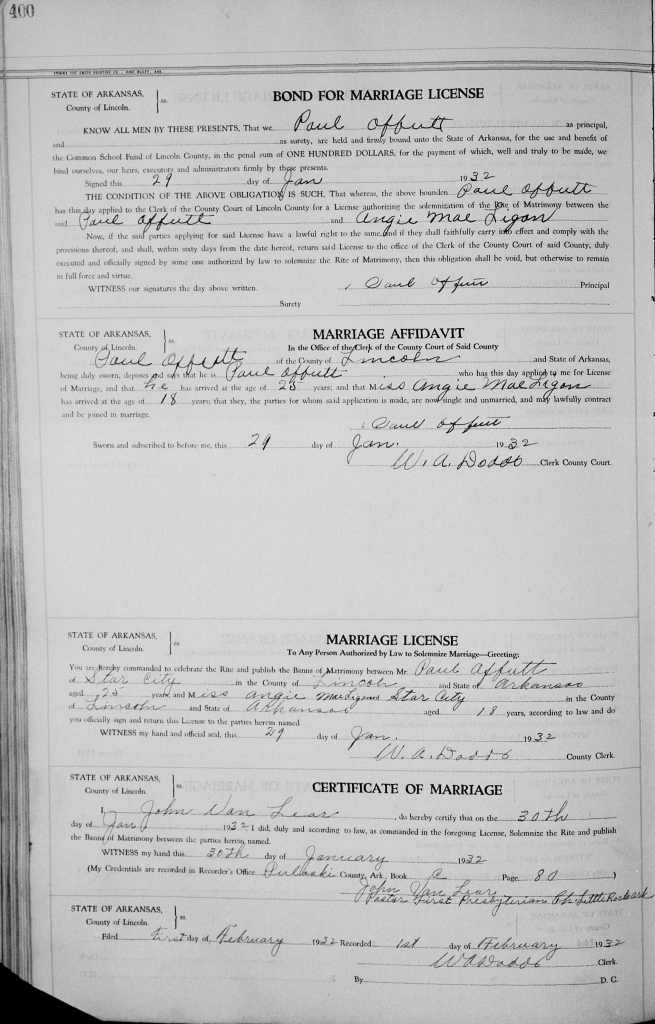 400
STATE OF ARKANSAS,
County of Lincoln. } ss.
BOND FOR MARRIAGE LICENSE
KNOW ALL MEN BY THESE PRESENTS, That we Paul Offutt as principal,
and as surety, are held and firmly bound unto the State of Arkansas, for the use and benefit of
the Common School Fund of Lincoln County, in the penal sum of ONE HUNDRED DOLLARS, for the payment of which, well and truly to be made, we
bind ourselves, our heirs, executors and administrators firmly by these presents.
Signed this 29 day of Jan 1932
THE CONDITION OF THE ABOVE OBLIGATION IS SUCH, That whereas, the above bounden Paul Offutt
has this day applied to the Clerk of the County Court of Lincoln County for a License authorizing the solemnization of the Rite of Matrimony between the
said Paul Offutt and Angie Mae Ligon
Now, if the said parties applying for said License have a lawful right to the same, and if they shall faithfully carry into effect and comply with the
provisions thereof, and shall, within sixty days from the date hereof, return said License to the office of the Clerk of the County Court of said County, duly
executed and officially signed by some one authorized by law to solemnize the Rite of Matrimony, then this obligation shall be void, but otherwise to remain
in full force and virtue.
WITNESS our signatures the day above written. Paul Offutt Principal
Surety
STATE OF ARKANSAS,
County of Lincoln. } ss.
MARRIAGE AFFIDAVIT
In the Office of the Clerk of the County Court of Said County
Paul Offutt of the County of Lincoln and State of Arkansas,
being duly sworn, deposes and says that he is Paul Offutt who has this day applied to me for License
of Marriage, and that he has arrived at the age of 25 years; and that Miss Angie Mae Ligon
has arrived at the age of 18 years; that they, the parties for whom said application is made, are now single and unmarried, and may lawfully contract
and be joined in marriage.
Paul Offutt
Sworn and subscribed to before me, this 29 day of Jan. 1932
W. A. Dodds Clerk County Court.
STATE OF ARKANSAS,
County of Lincoln. } ss.
MARRIAGE LICENSE
To Any Person Authorized by Law to Solemnize Marriage—Greeting:
You are hereby commanded to celebrate the Rite and publish the Banns of Matrimony between Mr. Paul Offutt
of Star City in the County of Lincoln and State of Arkansas
aged 25 years, and Miss Angie Mae Ligon of Star City in the County
of Lincoln and State of Arkansas aged 18 years, according to law and do
you officially sign and return this License to the parties herein named
WITNESS my hand and official seal, this 29 day of Jan. 1932
W. A. Dodds County Clerk.
STATE OF ARKANSAS,
County of Lincoln. } ss.
CERTIFICATE OF MARRIAGE
I, John Van Lear, do hereby certify that on the 30th
day of Jan 1932 I did, duly and according to law, as commanded in the foregoing License, Solemnize the Rite and publish
the Banns of Matrimony between the parties herein named.
WITNESS my hand this 30th day of January 1932
(My Credentials are recorded in Recorder's Office Pulaski County, Ark., Book C Page 80 )
John Van Lear
Pastor First Presbyterian Ch. Little Rock Ark
STATE OF ARKANSAS,
County of Lincoln. } ss.
Filed first day of February 1932 Recorded 1st day of February 1932
W A Dodds Clerk.
By D. C.